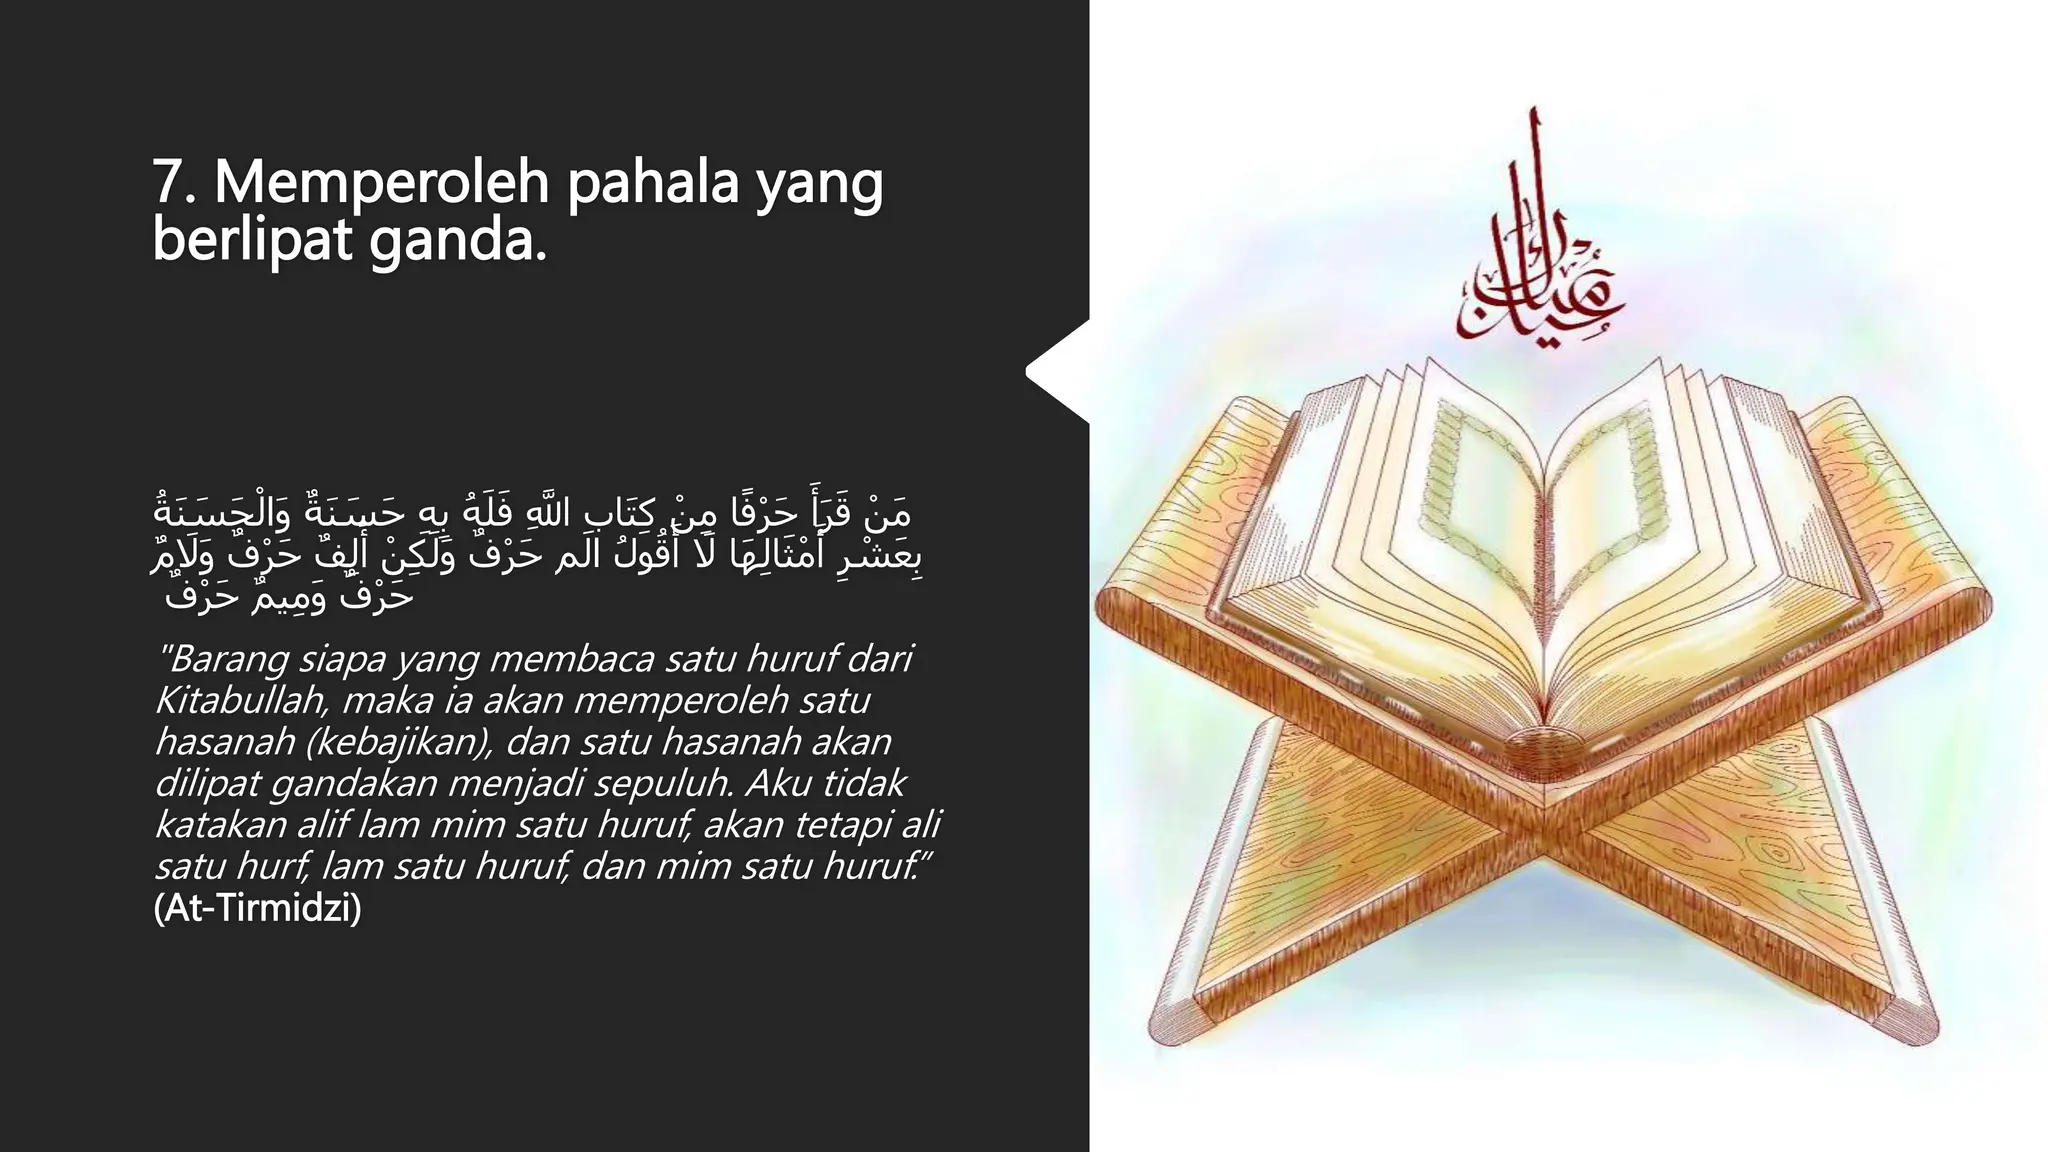 7. Memperoleh pahala yang
berlipat ganda.
مَنْ قَرَأَ حَرْفًا مِنْ كِتَاب اللَّهِ فَلَهُ بِهِ حَسَنَةٌ وَالْحَسَنَةُ
بِعَشْرِ أَمْثَالِهَا لَا أَقُولُ الَم حَرْفٌ وَلَكِنْ أَلِفٌ حَرْفٌ وَلَامٌ
حَرْفٌ وَمِيمٌ حَرْفٌ
"Barang siapa yang membaca satu huruf dari
Kitabullah, maka ia akan memperoleh satu
hasanah (kebajikan), dan satu hasanah akan
dilipat gandakan menjadi sepuluh. Aku tidak
katakan alif lam mim satu huruf, akan tetapi ali
satu hurf, lam satu huruf, dan mim satu huruf.”
(At-Tirmidzi)